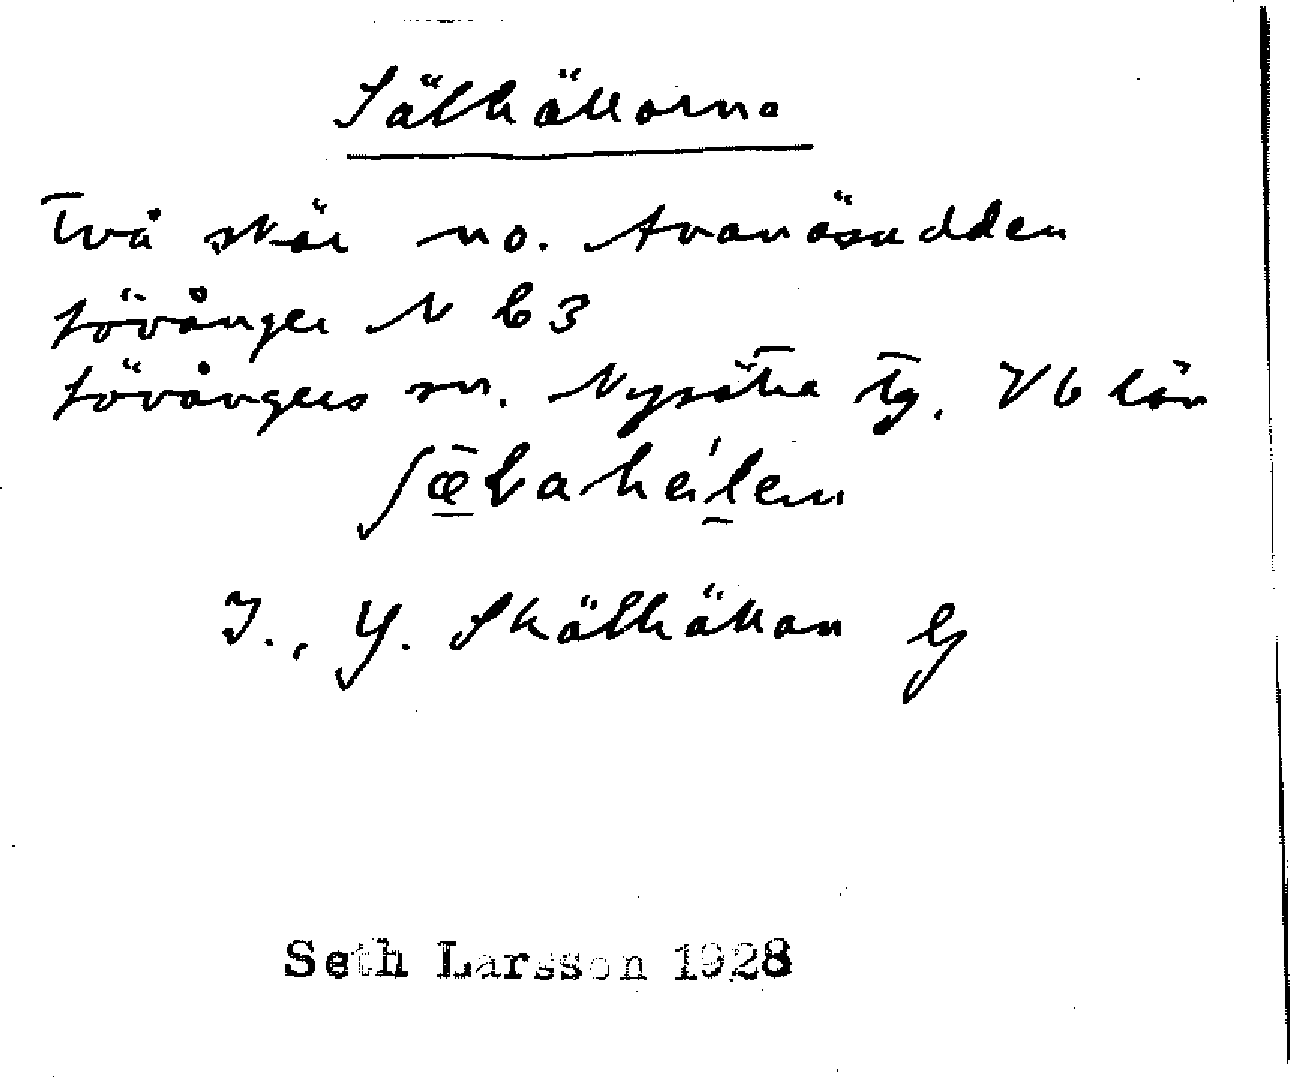 Sälhällorna
Två skär no. Avanäsudden
Lövånger N b 3
Lövångers sn. Nysätra tg. Vb län
I., Y. Skälhällan G
Seth Larsson 1928